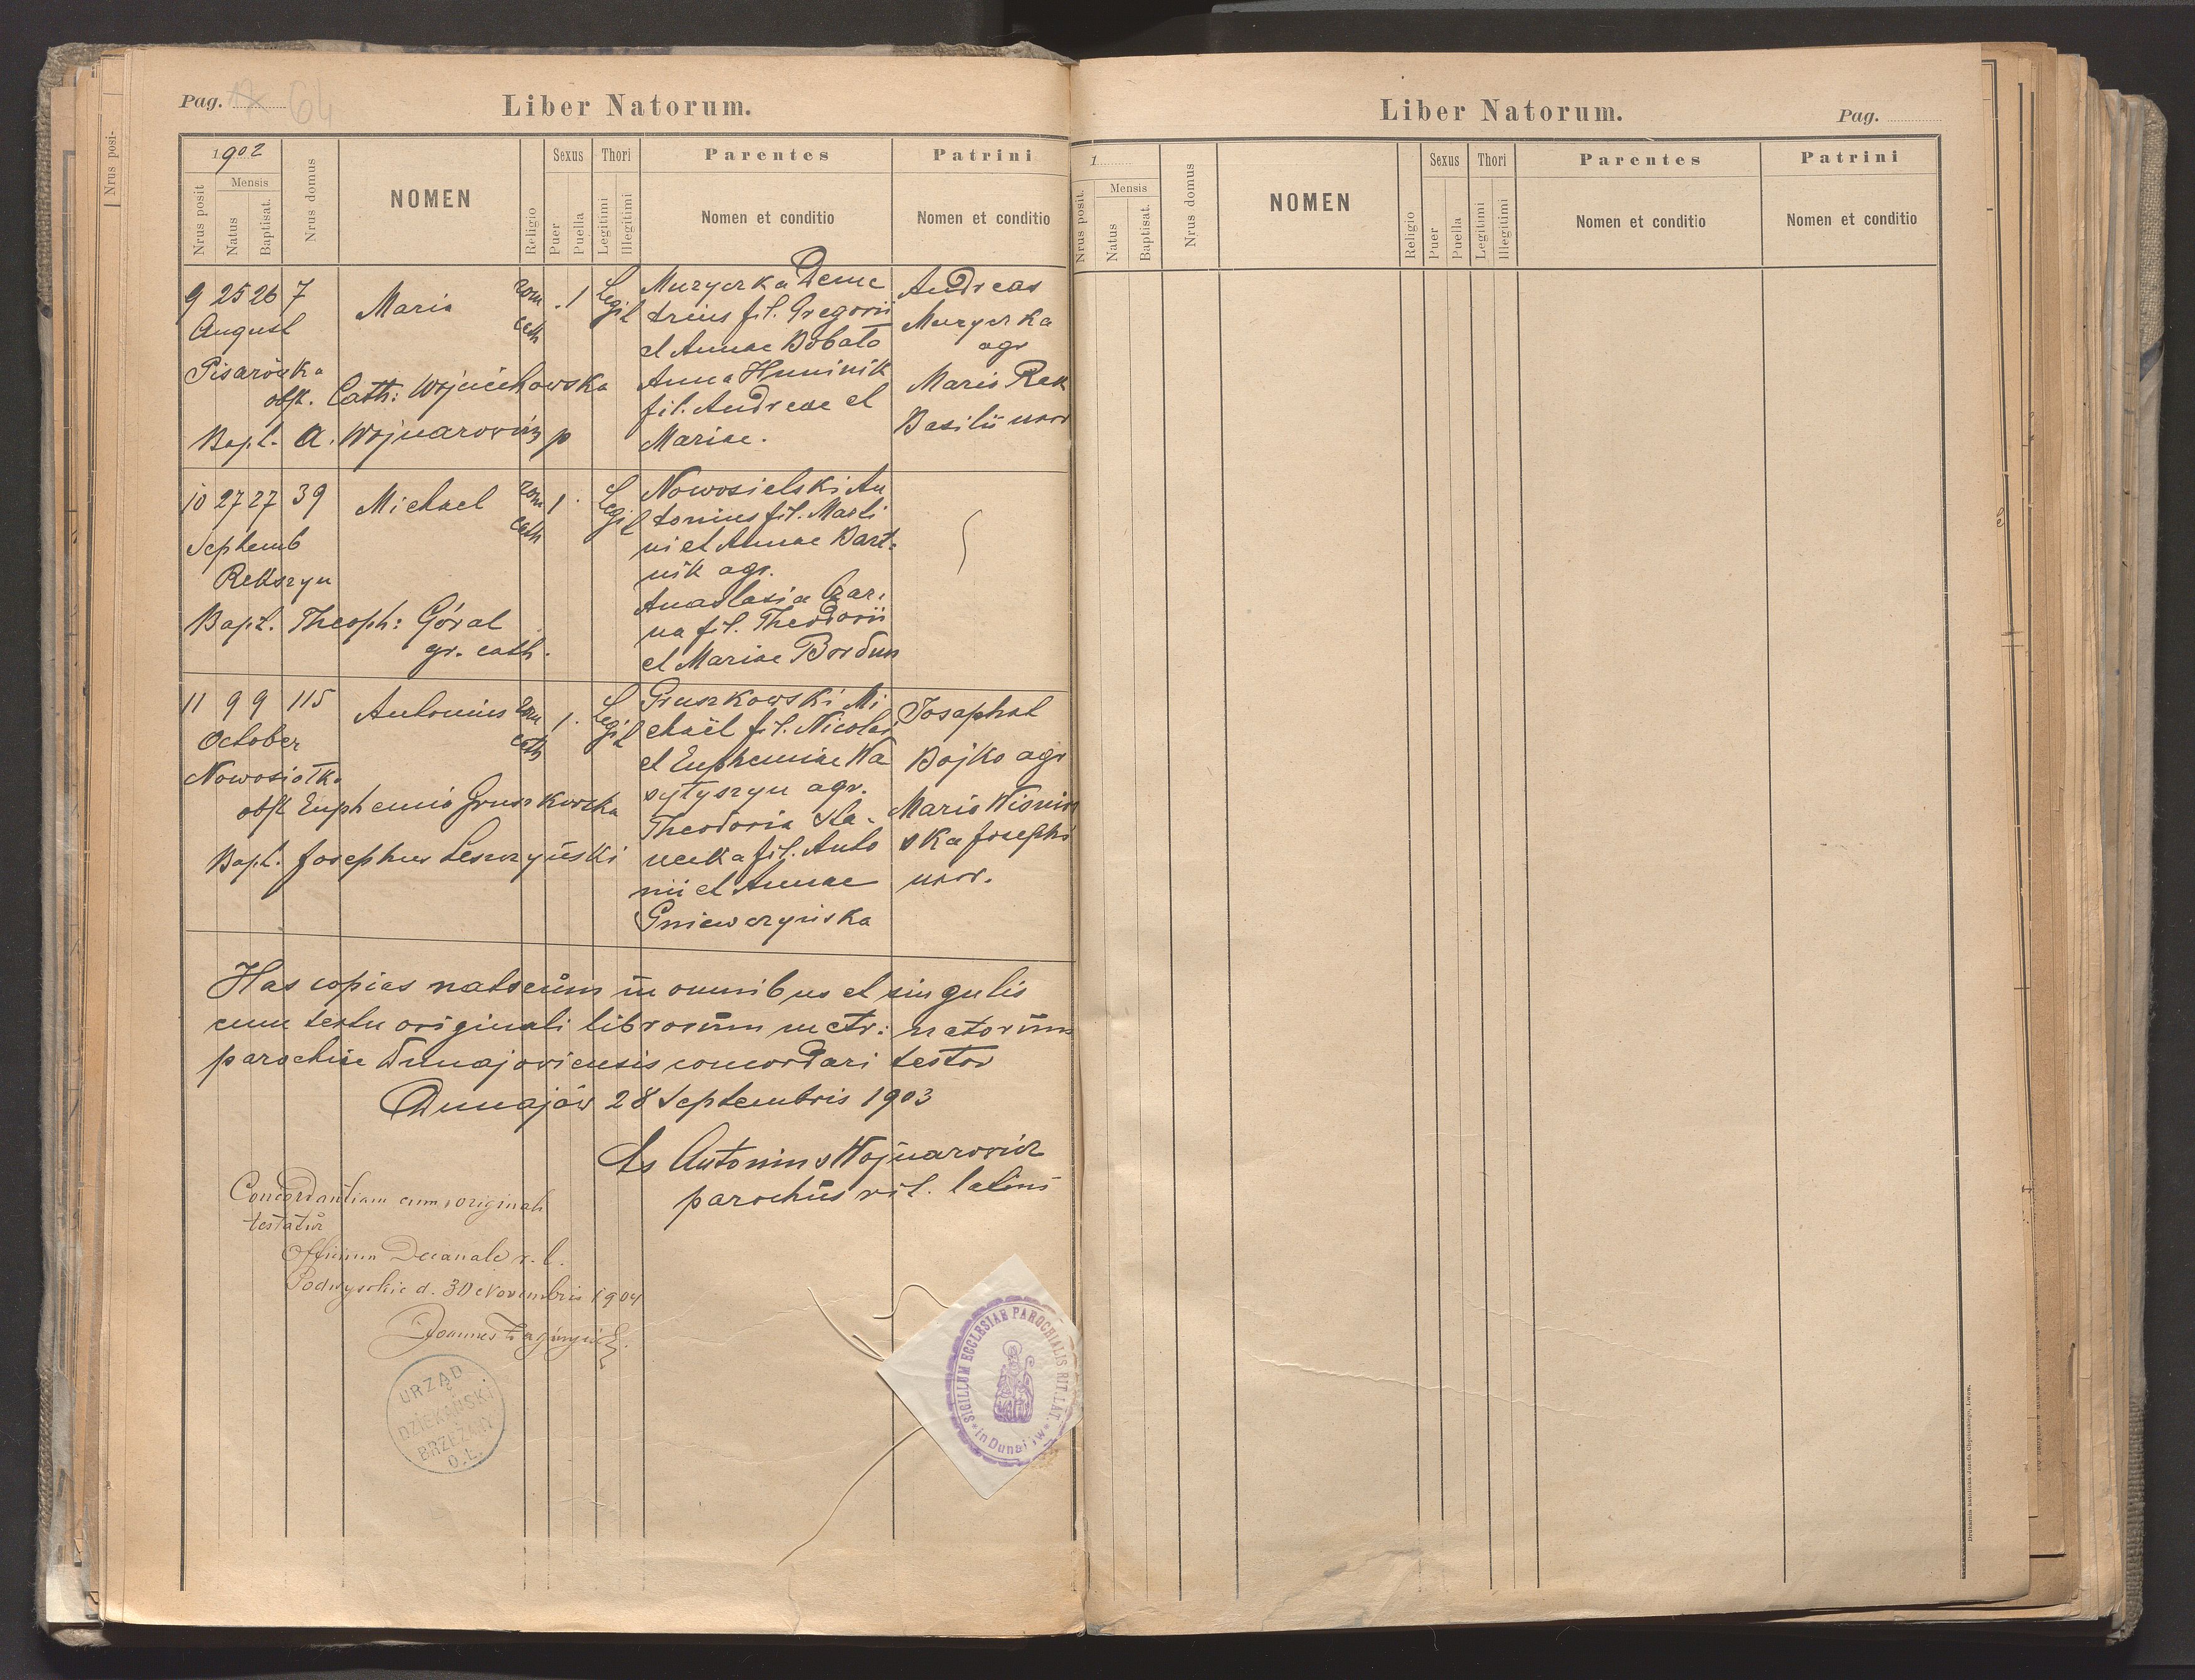 Pag. 64
Liber Natorum.
1902
Nrus posit
Mensis
Natus
Baptisat.
Nrus domus
NOMEN
Religio
Sexus
Puer
Puella
Thori
Legitimi
Illegitimi
Parentes
Nomen et conditio
Patrini
Nomen et conditio
9 25 26 7
August
Pisarówka
Maria
rom
cath
. 1
Legit
obst. Cath: Wojciechowska
Bapt. A. Wojnarowicz p
Muzyczka Deme
trius fil. Gregorii
et Annae Bobato
Anna Huminik
fil. Andreae et
Mariae.
Andreas
Muzyczka
agr
Maria Rak
Basilii uxor
10 27 27 39
Septemb
Rekszyn
Michael
rom
cath
1 .
Legit
Bapt. Theoph: Góral
gr. cath.
Nowosielski An
tonius fil. Marti
ni et Annae Bart=
nik agr.
Anastasia Czar,
na fil. Theodorii
et Mariae Bordun
11 9 9 115
October
Nowosiołka
Antonius
rom
cath
1 .
Legit
obst Euphemia Gruszkowska
Bapt. Josephus Leszczyński
Gruszkowski Mi
chaël fil. Nicolai
et Euphemiae Wa
sytyszyn agr.
Theodoria Ha-
necka fil. Anto
nii et Annae
Gniewczyńska
Josaphat
Bojko agr
Maria Wisniow
ska Josephi
uxor.
Has copias natorum in omnibus et singulis
cum textu originali librorum metr: natorum
parochiae Dunajoviensis concordari testor
Dunajów 28 Septembris 1903
Antonius Wojnarowicz
parochus rit. latini
Concordantiam cum originali
testatur
Officium Decanale r. l.
Podwysokie d. 30 Novembris 1904
Joannes
URZĄD
DZIEKAŃSKI
BRZEŻANY
O.Ł.
SIGILLUM ECCLESIAE PAROCHIALIS RIT. LAT.
in Dunajow
Liber Natorum.
Pag.
1
Nrus posit.
Mensis
Natus
Baptisat.
Nrus domus
NOMEN
Religio
Sexus
Puer
Puella
Thori
Legitimi
Illegitimi
Parentes
Nomen et conditio
Patrini
Nomen et conditio
Drukarnia Katolicka Józefa Chęcińskiego, Lwów.
Nrus posi-